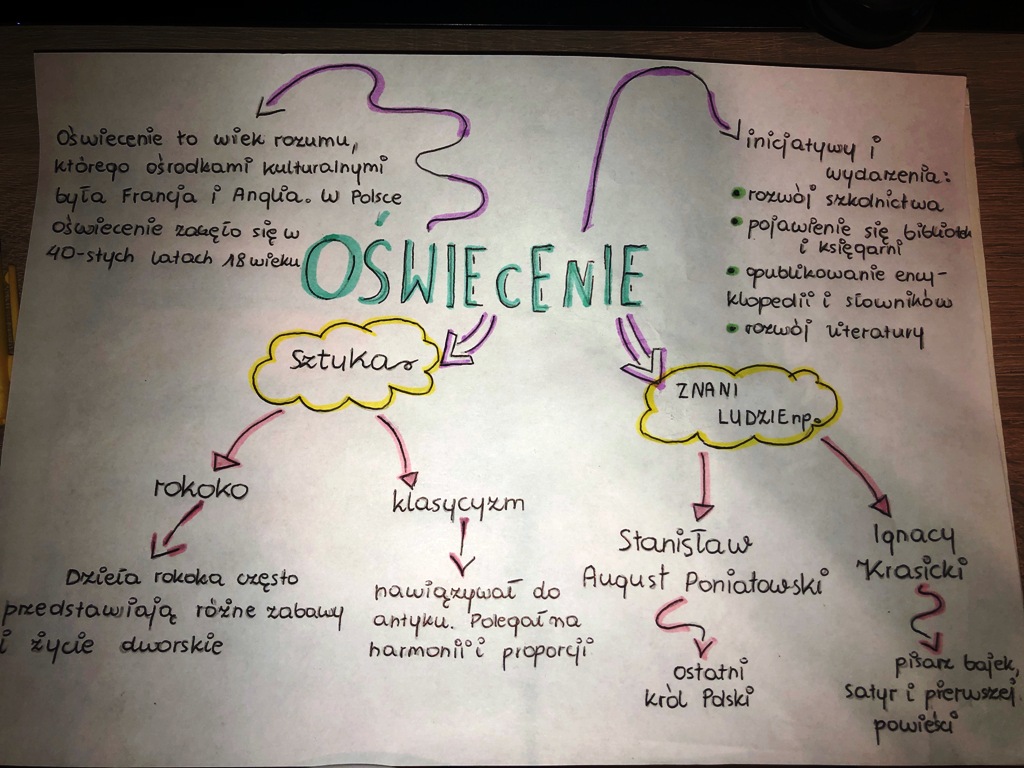 Oświecenie to wiek rozumu,
którego ośrodkami kulturalnymi
była Francja i Anglia. W Polsce
oświecenie zaczęło się w
40-stych latach 18 wieku
inicjatywy i
wydarzenia:
• rozwój szkolnictwa
• pojawienie się bibliotek
i księgarni
• opublikowanie ency-
klopedii i słowników
• rozwój literatury
OŚWIECENIE
Sztuka
ZNANI
LUDZIE np.
rokoko
Dzieła rokoka często
przedstawiają różne zabawy
i życie dworskie
klasycyzm
nawiązywał do
antyku. Polegał na
harmonii i proporcji
Stanisław
August Poniatowski
ostatni
król Polski
Ignacy
Krasicki
pisarz bajek,
satyr i pierwszej
powieści